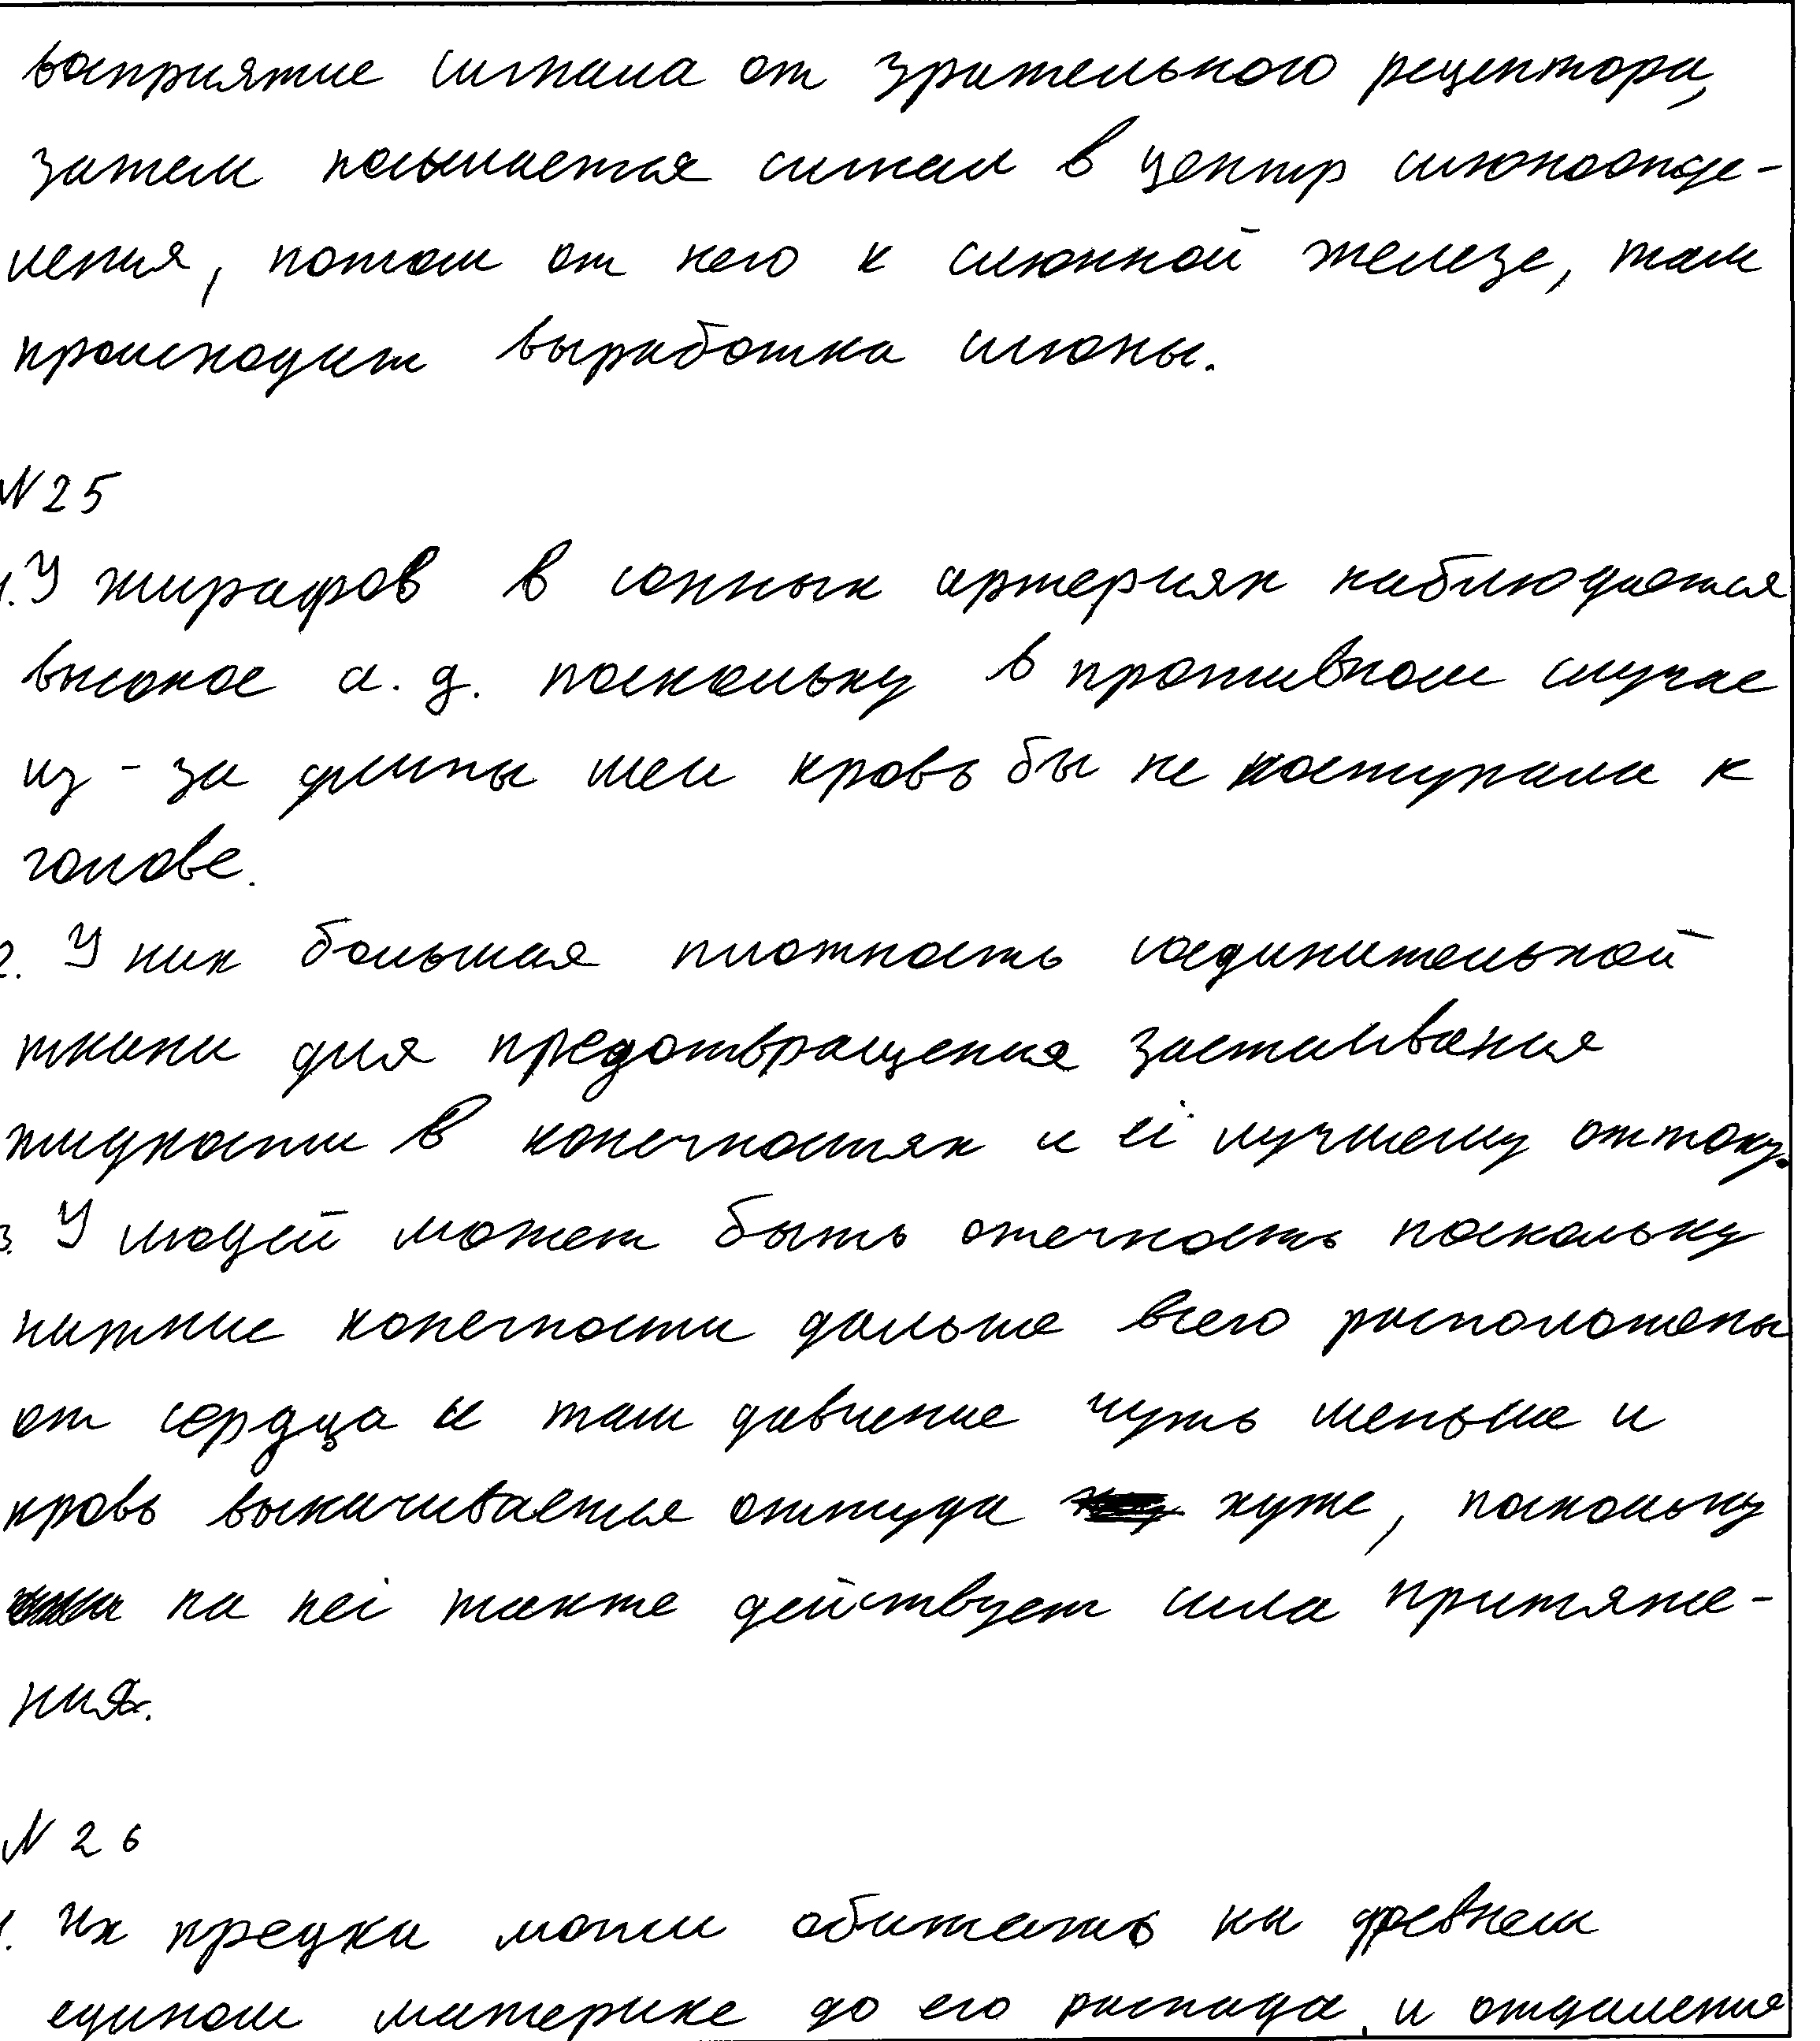 восприятие сигнала от зрительного рецептора,
затем посылается сигнал в центр слюноотде-
ления, потом от него к слюнной железе, там
происходит выработка слюны.
N 25
1. У жирафов в сонных артериях наблюдается
высокое а. д. поскольку в противном случае
из-за длины шеи кровь бы не поступала к
голове.
2. У них большая плотность соединительной
ткани для предотвращения застаивания
жидкости в конечностях и её лучшему оттоку.
3. У людей может быть отечность поскольку
нижние конечности дальше всего расположены
от сердца и там давление чуть меньше и
кровь выкачивается оттуда хуже, поскольку
на неё также действует сила притяже-
ния.
N 26
1. Их предки могли обитать на древнем
едином материке до его распада, и отдаления